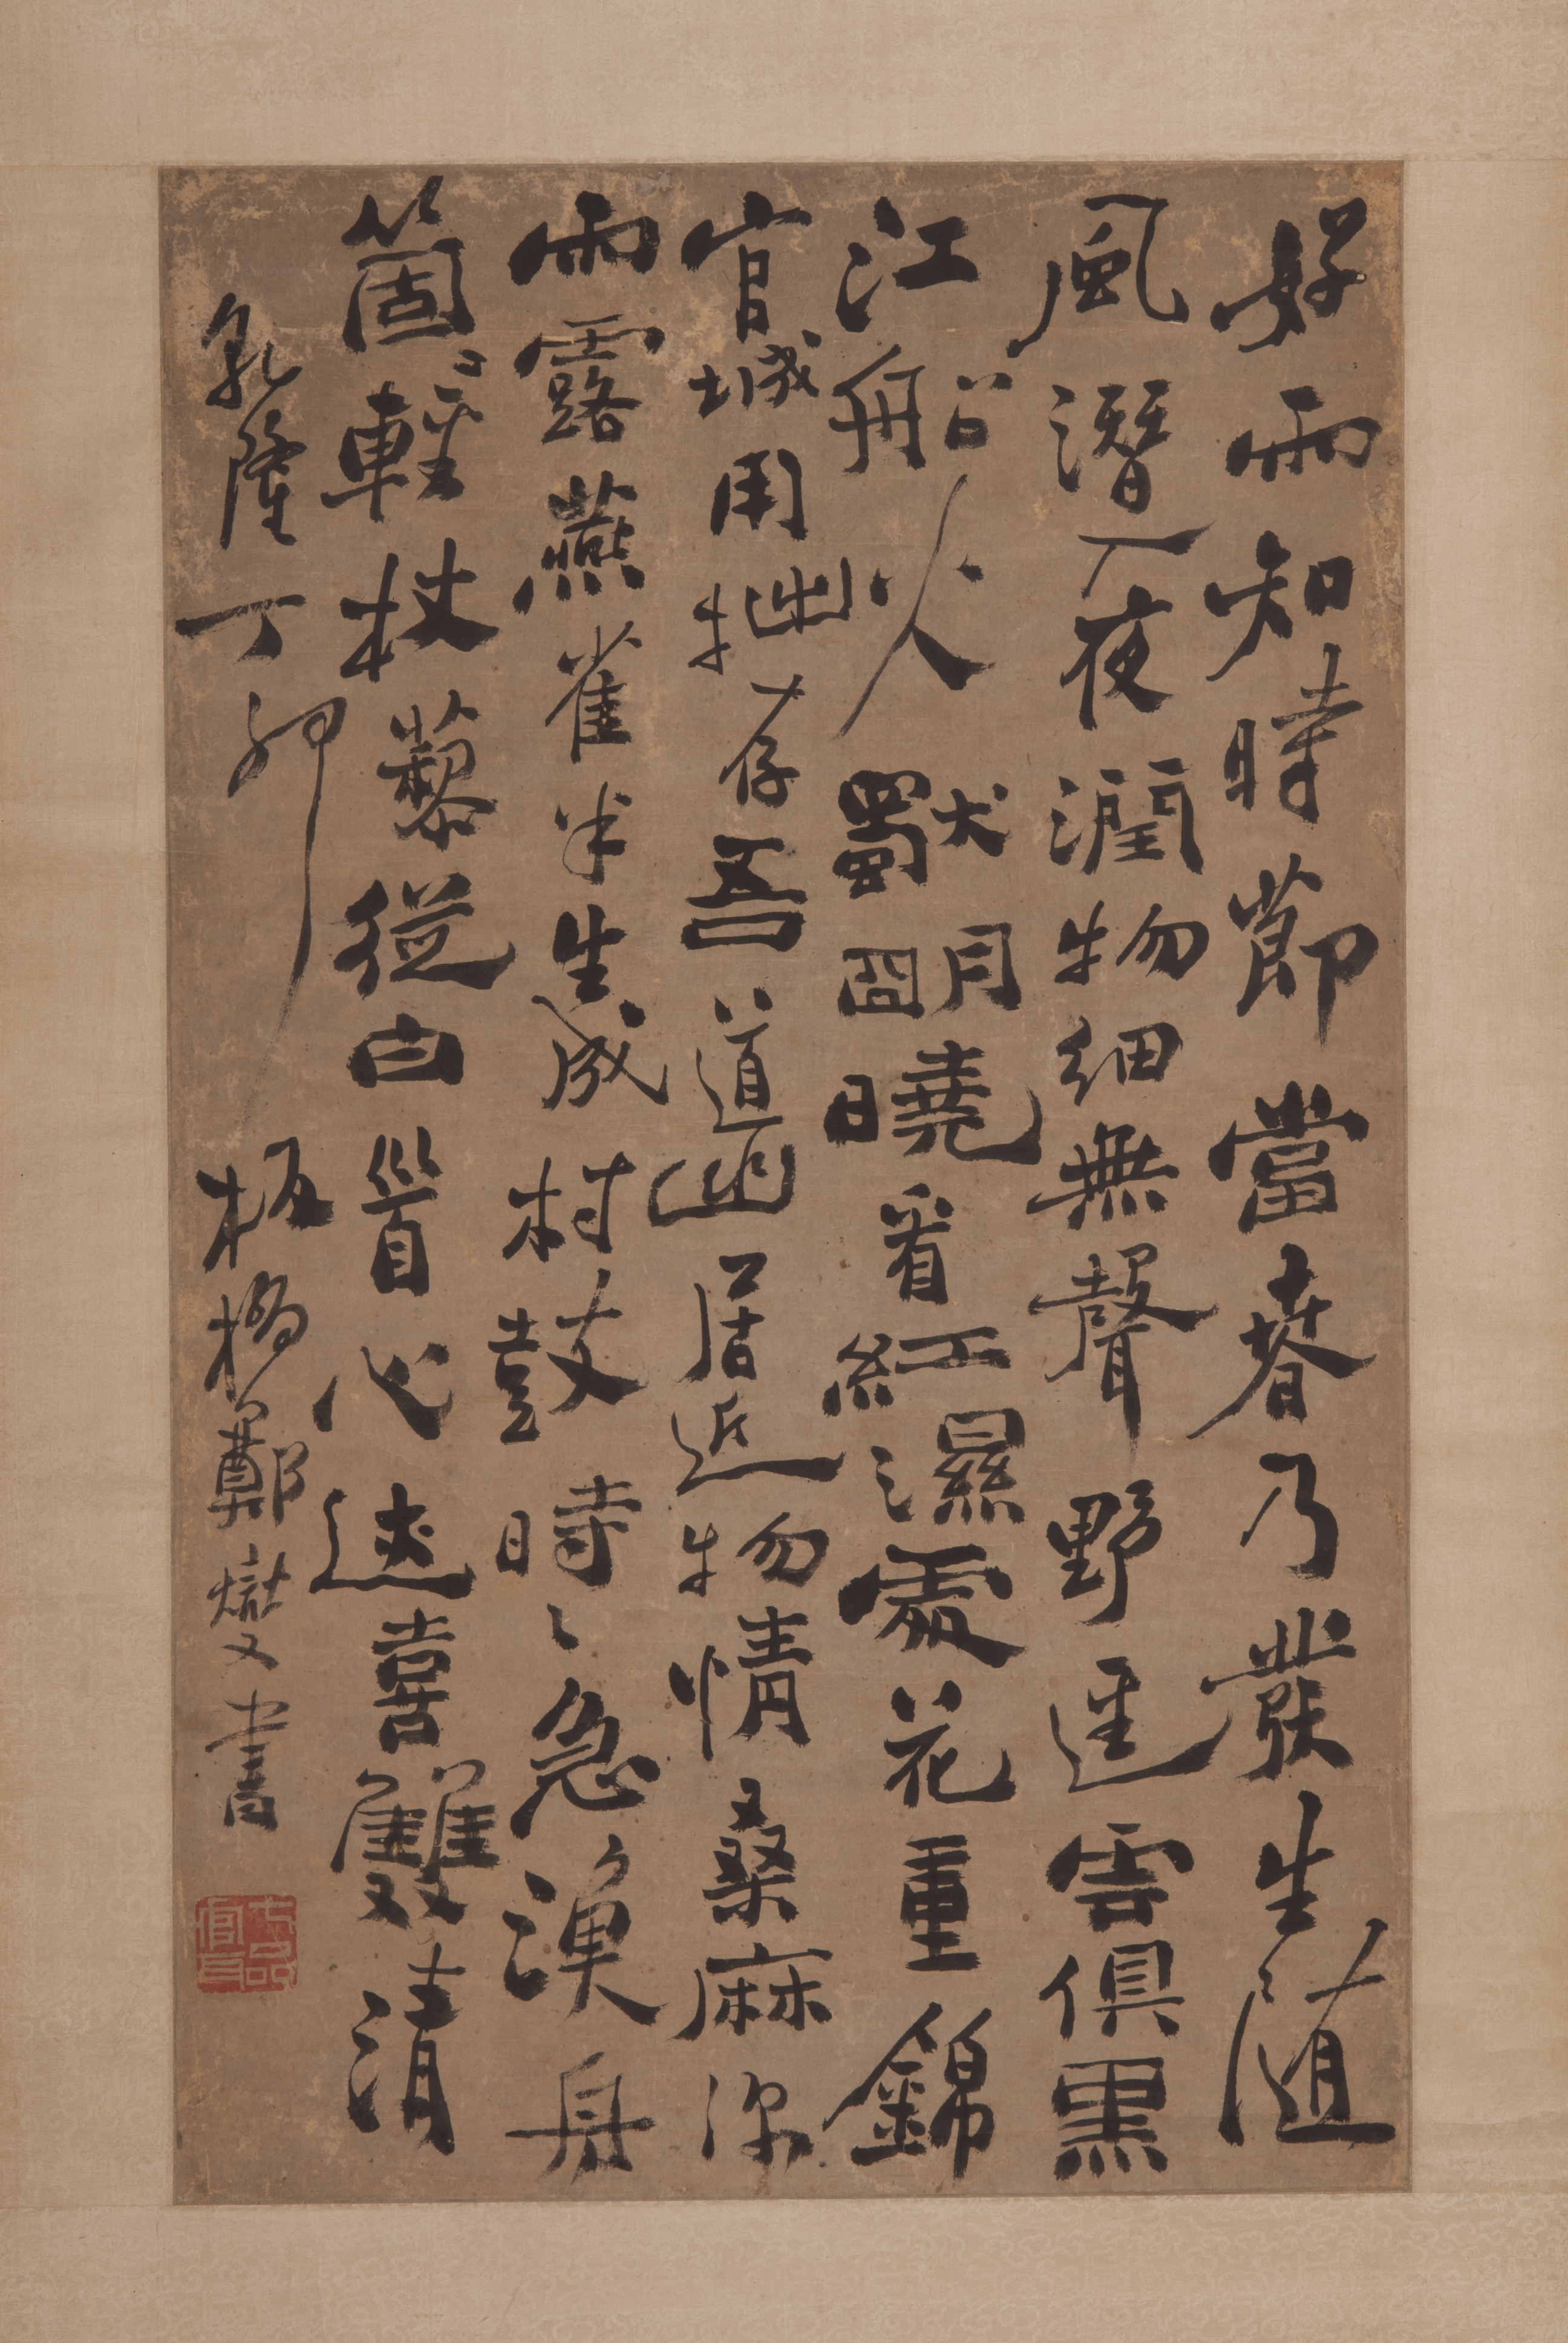 好雨知時節當春乃發生隨
風潛入夜潤物細無聲野逕雲俱黑
江船火獨明曉看紅濕處花重錦
官城用拙存吾道幽居近物情桑麻深
雨露燕雀半生成村鼓時〻急漁舟
箇〻輕杖藜從白首心迹喜雙清
乾隆丁卯 板橋鄭燮書
七品官耳